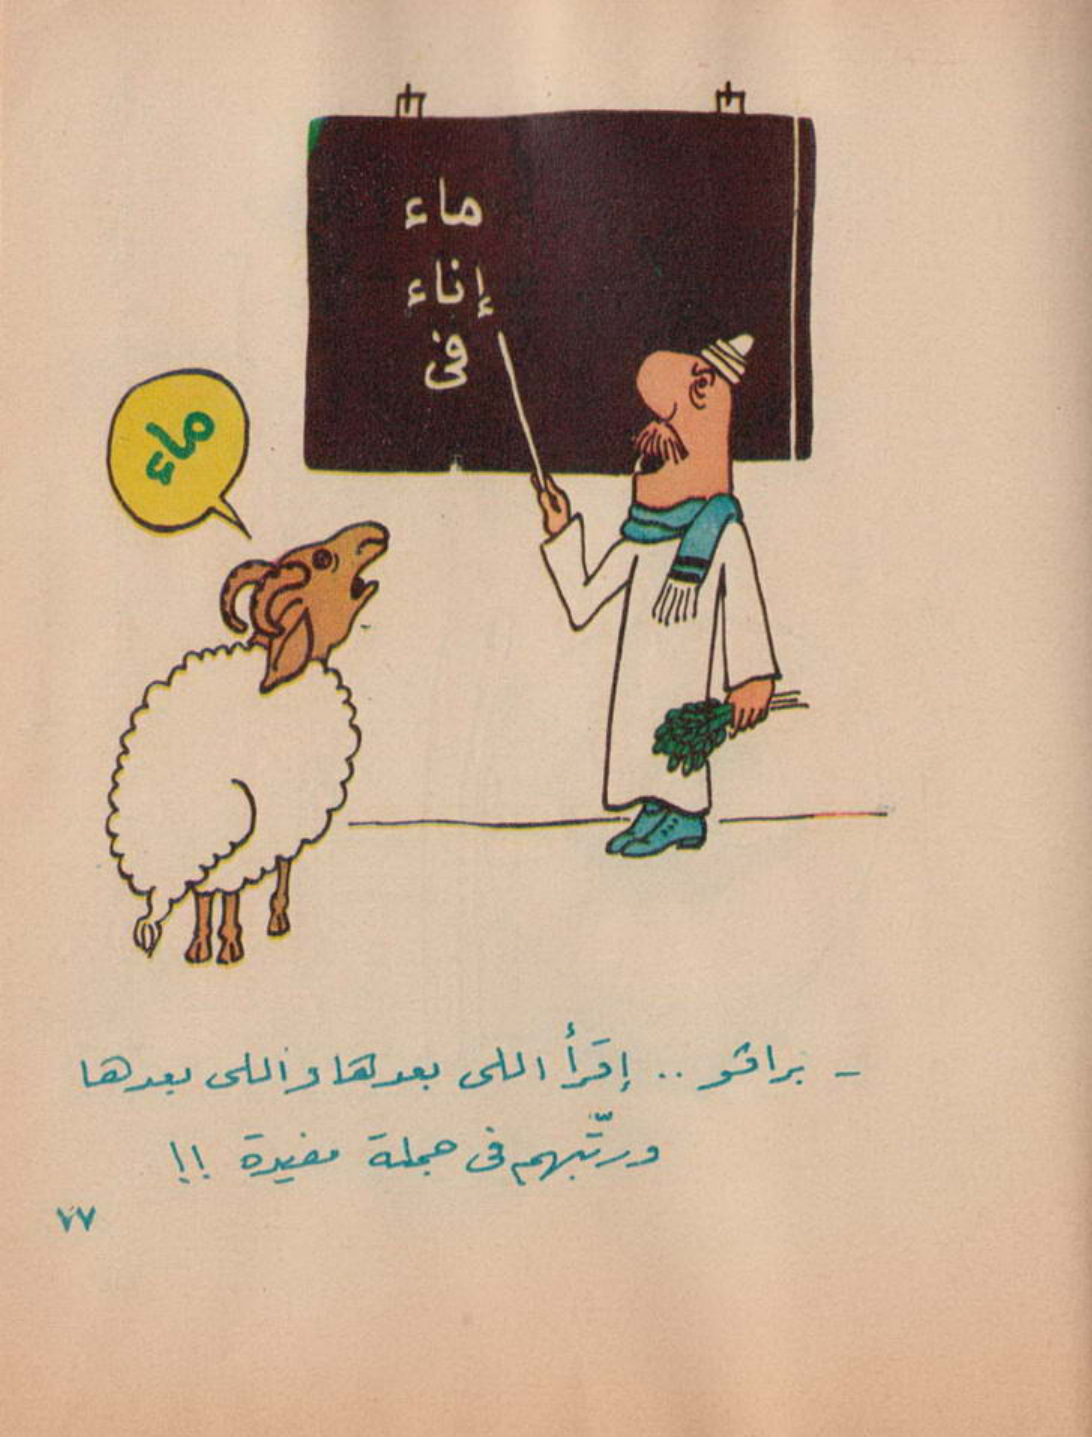 ماء
إناء
فى
ماء
- براڤو .. إقرأ اللى بعدها واللى بعدها
ورتّبهم فى جملة مفيدة !!
٧٧